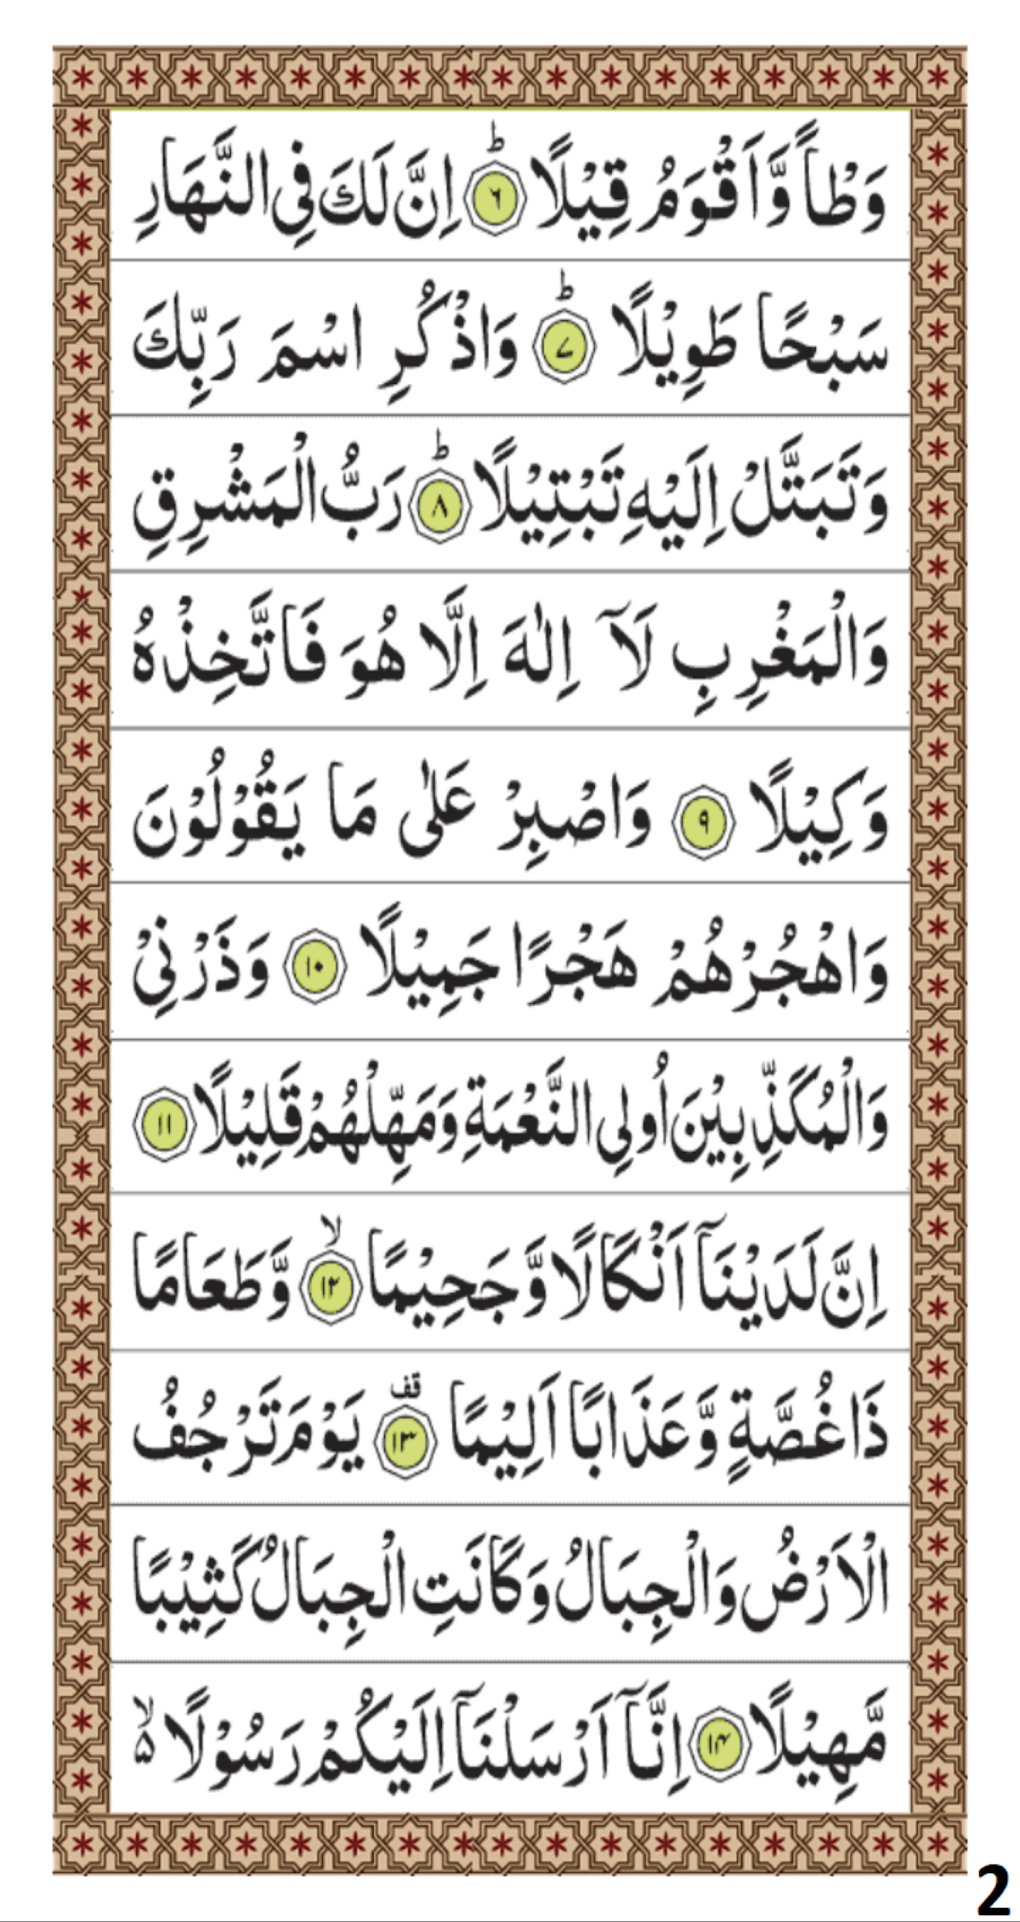 وَطْاً وَّاَقْوَمُ قِيْلًا ؕ ٦ اِنَّ لَكَ فِى النَّهَارِ
سَبْحًا طَوِيْلًا ؕ ۷ وَاذْكُرِ اسْمَ رَبِّكَ
وَتَبَتَّلْ اِلَيْهِ تَبْتِيْلًا ؕ ۸ رَبُّ الْمَشْرِقِ
وَالْمَغْرِبِ لَاۤ اِلٰهَ اِلَّا هُوَ فَاتَّخِذْهُ
وَكِيْلًا ۹ وَاصْبِرْ عَلٰى مَا يَقُوْلُوْنَ
وَاهْجُرْهُمْ هَجْرًا جَمِيْلًا ۱۰ وَذَرْنِىْ
وَالْمُكَذِّبِيْنَ اُولِى النَّعْمَةِ وَمَهِّلْهُمْ قَلِيْلًا ۱۱
اِنَّ لَدَيْنَاۤ اَنْكَالًا وَّجَحِيْمًا ۙ ۱۲ وَّطَعَامًا
ذَا غُصَّةٍ وَّعَذَابًا اَلِيْمًا قف ۱۳ يَوْمَ تَرْجُفُ
الْاَرْضُ وَالْجِبَالُ وَكَانَتِ الْجِبَالُ كَثِيْبًا
مَّهِيْلًا ۱۴ اِنَّاۤ اَرْسَلْنَاۤ اِلَيْكُمْ رَسُوْلًا ۙ۵
2